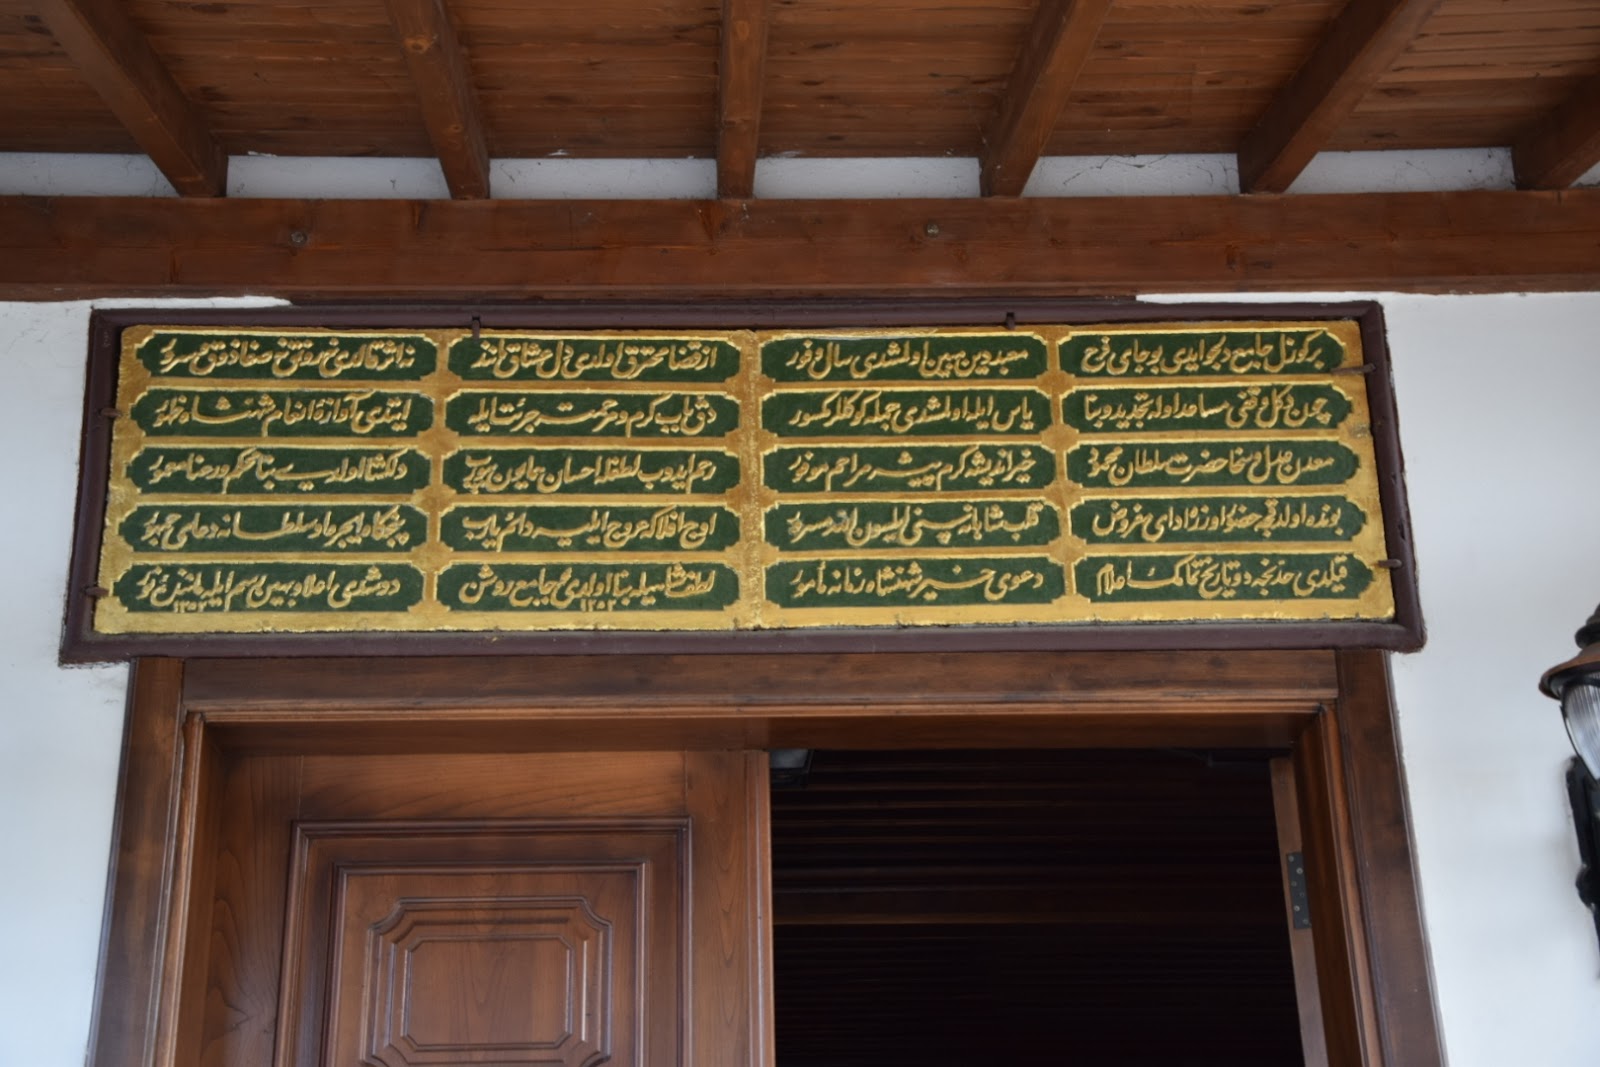 بر کوزل جامع دلجو ایدی بو جای فرح
معبد دین مبین اولمشدی سال وفور
از قضا محترق اولدی دل عشاق مانند
زائر قالدی نه رونق نه صفا ذوق سرور
چون دکل وقفی مساعد اوله تجدید و بنا
یاس ایله اولمشدی جمله کوکللر مکسور
دقی باب کرم و مرحمت جرئت ایله
ایتدی آوازۀ انعام شهنشاه ظهور
معدن عدل و سخا حضرت سلطان محمود
خیر اندیشه کرم پیشه مراحم موفور
رحم ایدوب لطفله احسان همایون بیورب
دلکشا اولدی بنا محکم و رعنا معمور
بونده اولدقجه حضور اوزره ادای مفروض
قلب شاهانه سنی ایلسون الله مسرور
اوج افلاکه عروج ایلیه دائم یارب
پنجکاه ایچره او سلطانه دعای جمهور
قیلدی حقنجه دو تاریخ تمامک اعلام
دعوی خیر شهنشاه زمانه مأمور
لطف شاهیله بنا اولدی جامع روشن ١٢٥٢
دوشدی اعلا و بهین رسم ایله ١٢٥٢